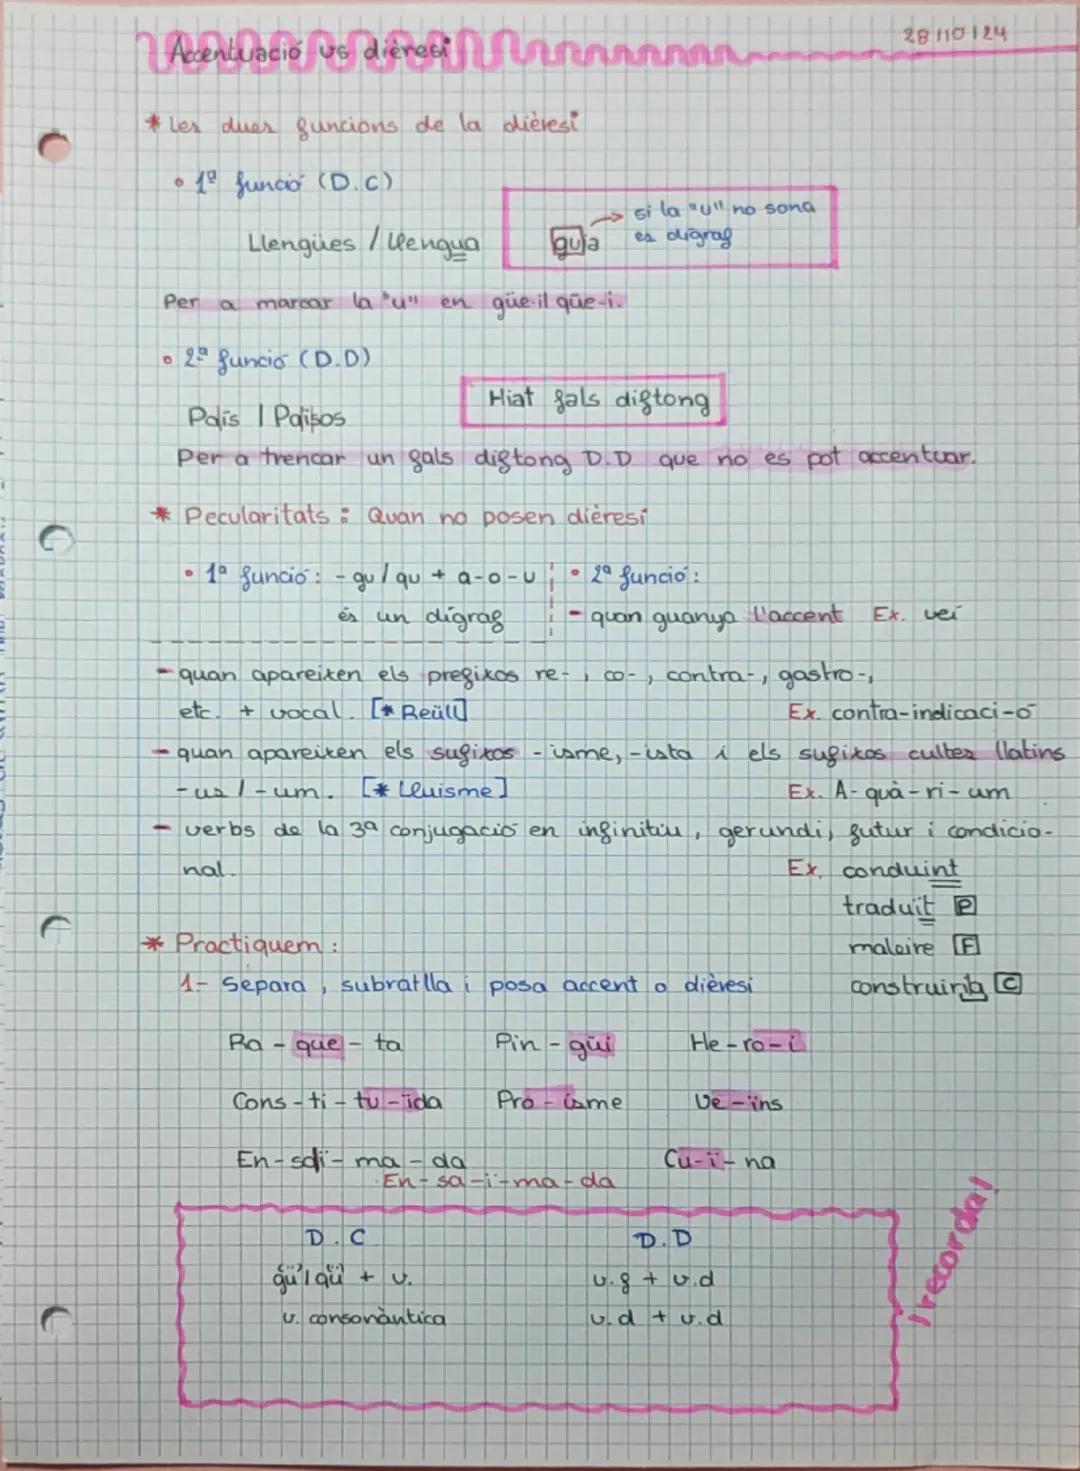 Accentuació vs dièresi
28/10/24
* Les dues funcions de la dièresi
• 1ª funció (D.C)
Llengües / Llengua
guia → si la "u" no sona
es dígraf
Per a marcar la "u" en güe-i/ qüe-i.
• 2ª funció (D.D)
Hiat fals diftong
País / Països
Per a trencar un fals diftong D.D que no es pot accentuar.
* Pecularitats: Quan no posen dièresi
• 1ª funció: - gu/qu + a-o-u
és un dígraf
• 2ª funció:
- quan guanya l'accent Ex. veí
- quan apareixen els prefixos re-, co-, contra-, gastro-,
etc. + vocal. [* Reüll]
Ex. contra-indicaci-ó
- quan apareixen els sufixos -isme, -ista i els sufixos cultes llatins
-us / -um. [* Lluisme]
Ex. A-quà-ri-um
- verbs de la 3ª conjugació en infinitiu, gerundi, futur i condicio-
nal.
Ex. conduint
traduït P
maleire F
construiria C
* Practiquem:
1- Separa, subratlla i posa accent o dièresi
Ra - que - ta
Pin - güi
He - ro - i
Cons - ti - tu - ïda
Pro - isme
Ve - ïns
En - sai - ma - da
En - sa - i - ma - da
Cu - i - na
D.C
D.D
gü/qü + v.
v.f + v.d
v. consonàntica
v.d + v.d
¡recorda!